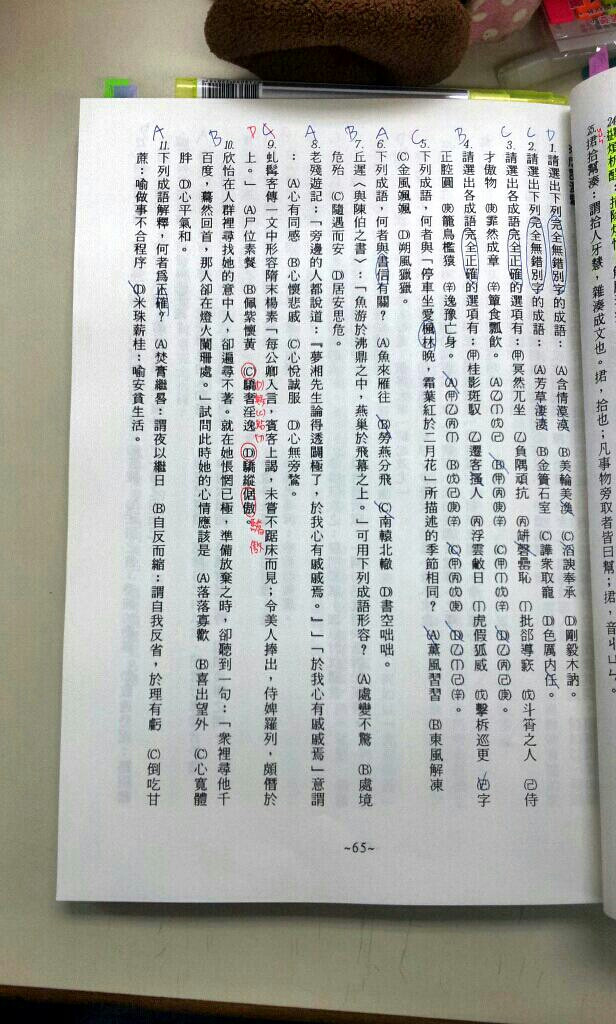 1. 請選出下列完全無錯別字的成語：　(A)含情漠漠　(B)美輪美渙　(C)滔諛奉承　(D)剛毅木訥。
2. 請選出下列完全無錯別字的成語：　(A)芳草淒淒　(B)金簣石室　(C)譁衆取寵　(D)色厲內任。
3. 請選出各成語完全正確的選項有：(甲)冥然兀坐　(乙)負隅頑抗　(丙)缾罄罍恥　(丁)批郤導窾　(戊)斗筲之人　(己)侍
才傲物　(庚)霏然成章　(辛)簞食瓢飲。　(A)乙丁戊己　(B)甲丙丁戊　(C)甲乙丁辛　(D)乙丙己庚。
4. 請選出各成語完全正確的選項有：(甲)桂影斑馭　(乙)遷客搔人　(丙)浮雲敝日　(丁)虎假狐威　(戊)擊柝巡更　(己)字
正腔圓　(庚)籠鳥檻猿　(辛)逸豫亡身。　(A)甲乙丙丁　(B)戊己庚辛　(C)甲丙戊庚　(D)乙丁己辛。
5. 下列成語，何者與「停車坐愛楓林晚，霜葉紅於二月花」所描述的季節相同？　(A)薰風習習　(B)東風解凍
(C)金風颯颯　(D)朔風獵獵。
6. 下列成語，何者與書信有關？　(A)魚來雁往　(B)勞燕分飛　(C)南轅北轍　(D)書空咄咄。
7. 丘遲〈與陳伯之書〉：「魚游於沸鼎之中，燕巢於飛幕之上。」可用下列成語形容？　(A)處變不驚　(B)處境
危殆　(C)隨遇而安　(D)居安思危。
8. 老殘遊記：「旁邊的人都說道：『夢湘先生論得透闢極了，於我心有戚戚焉。』」「於我心有戚戚焉」意謂
：　(A)心有同感　(B)心懷悲戚　(C)心悅誠服　(D)心無旁騖。
9. 虬髯客傳一文中形容隋末楊素「每公卿入言，賓客上謁，未嘗不踞床而見；令美人捧出，侍婢羅列，頗僭於
上。」　(A)尸位素餐　(B)佩紫懷黃　(C)驕奢淫逸　(D)驕縱倨傲。
10. 欣怡在人群裡尋找她的意中人，卻遍尋不著。就在她悵惘已極，準備放棄之時，卻聽到一句：「衆裡尋他千
百度，驀然回首，那人卻在燈火闌珊處。」試問此時她的心情應該是　(A)落落寡歡　(B)喜出望外　(C)心寬體
胖　(D)心平氣和。
11. 下列成語解釋，何者為正確？　(A)焚膏繼晷：謂夜以繼日　(B)自反而縮：謂自我反省，於理有虧　(C)倒吃甘
蔗：喻做事不合程序　(D)米珠薪桂：喻安貧生活。
~65~
D
C
C
B
C
A
B
A
D
B
A
驕傲
25. 捃拾幫湊：謂拾人牙慧，雜湊成文也。捃，拾也；凡事物旁取者皆曰幫；捃，音ㄐㄩㄣˋ